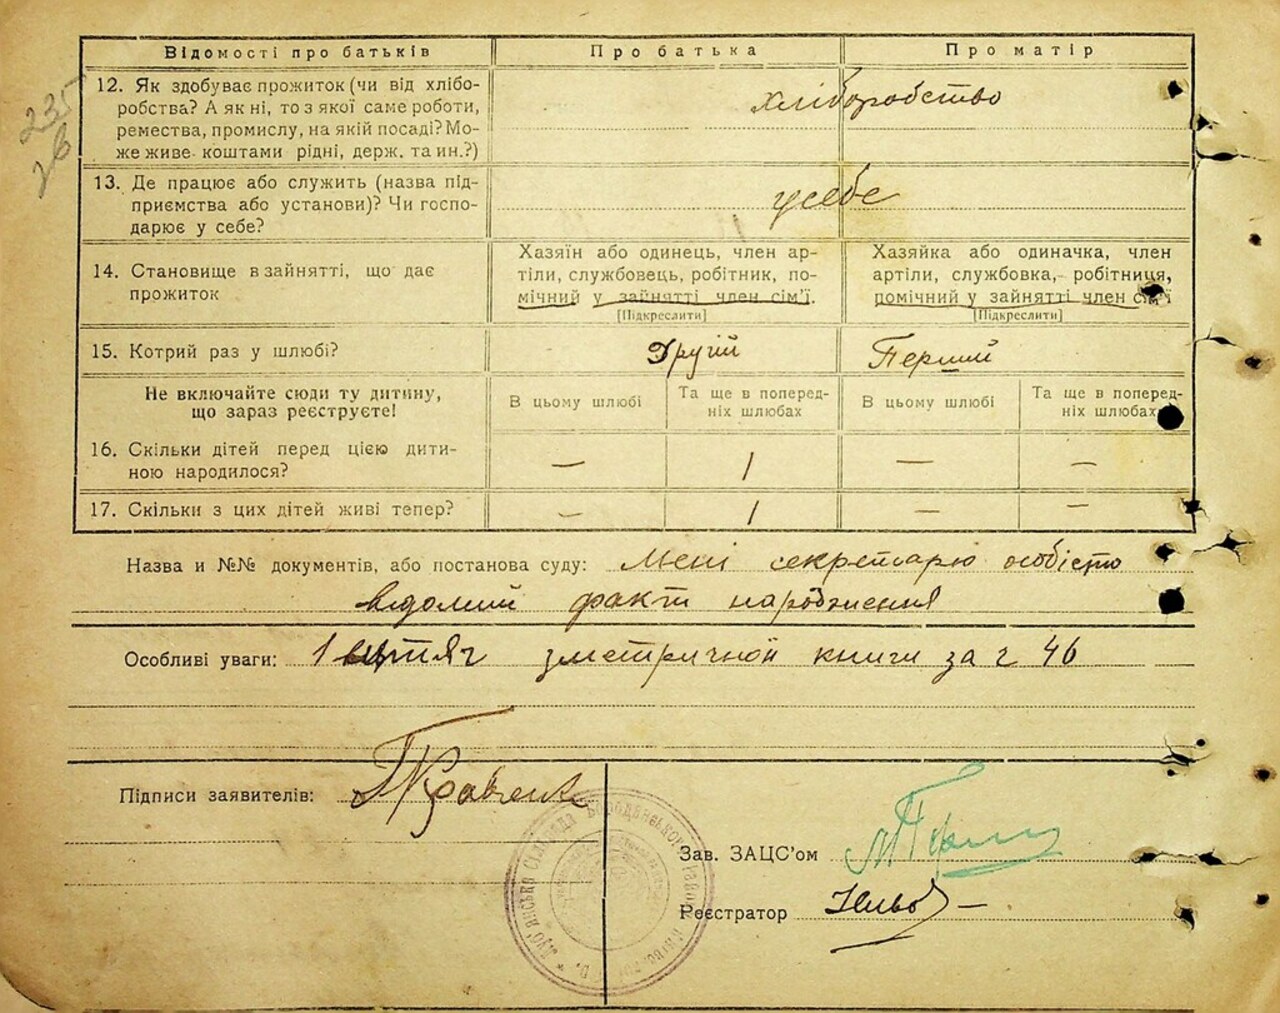 Відомості про батьків Про батька Про матір
12. Як здобуває прожиток (чи від хлібо-
робства? А як ні, то з якої саме роботи,
ремества, промислу, на якій посаді? Мо-
же живе коштами рідні, держ. та ин.?)
хліборобство
13. Де працює або служить (назва під-
приємства або установи)? Чи госпо-
дарює у себе?
усебе
14. Становище в зайнятті, що дає
прожиток
Хазяїн або одинець, член ар-
тіли, службовець, робітник, по-
мічний у зайнятті член сім'ї.
[Підкреслити]
Хазяйка або одиначка, член
артіли, службовка, робітниця,
помічний у зайнятті член сім'ї
[Підкреслити]
15. Котрий раз у шлюбі? Другій Перший
Не включайте сюди ту дитину,
що зараз реєструєте!
В цьому шлюбі
Та ще в поперед-
ніх шлюбах
В цьому шлюбі
Та ще в поперед-
ніх шлюбах
16. Скільки дітей перед цією дити-
ною народилося?
— 1 — —
17. Скільки з цих дітей живі тепер? — 1 — —
Назва и №№ документів, або постанова суду: Мені секретарю особісто
відомий факт народження
Особливі уваги: витяг зметричной книги за г 46
Підписи заявителів:
Зав. ЗАЦС'ом
Реєстратор
235
26